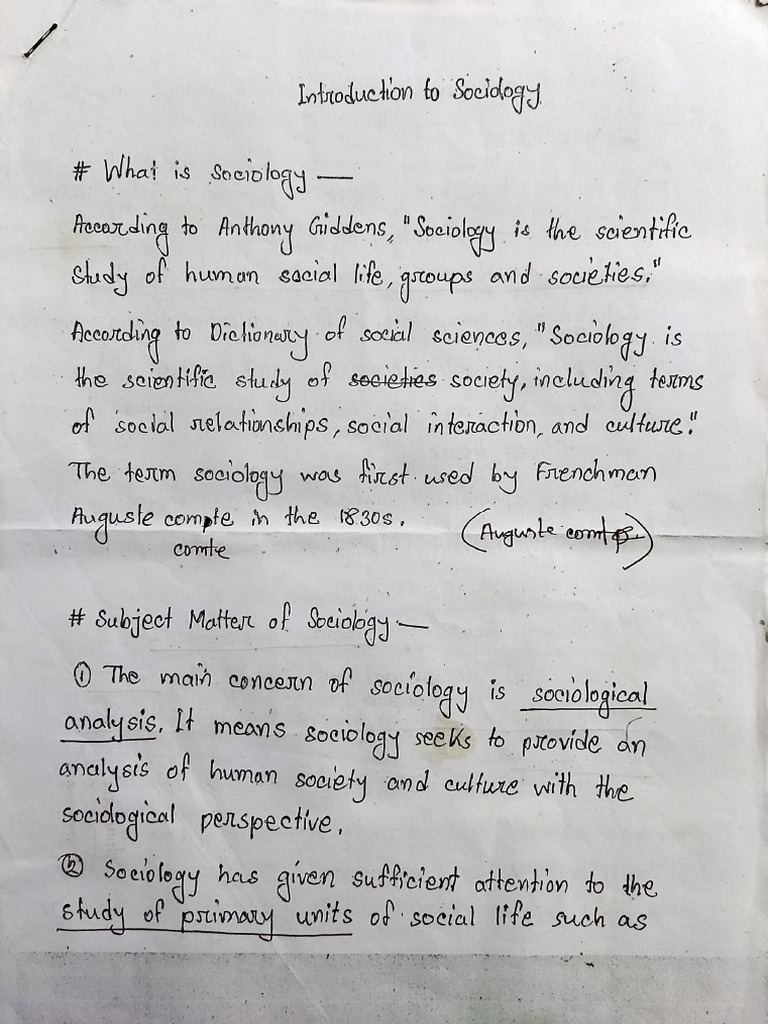 Introduction to Sociology
# What is sociology —
According to Anthony Giddens, "Sociology is the scientific
study of human social life, groups and societies."
According to Dictionary of social sciences, "Sociology is
the scientific study of societies society, including terms
of social relationships, social interaction, and culture."
The term sociology was first used by Frenchman
Auguste compte in the 1830s. (Auguste comte)
comte
# Subject Matter of Sociology —
① The main concern of sociology is sociological
analysis. It means sociology seeks to provide an
analysis of human society and culture with the
sociological perspective.
② Sociology has given sufficient attention to the
study of primary units of social life such as